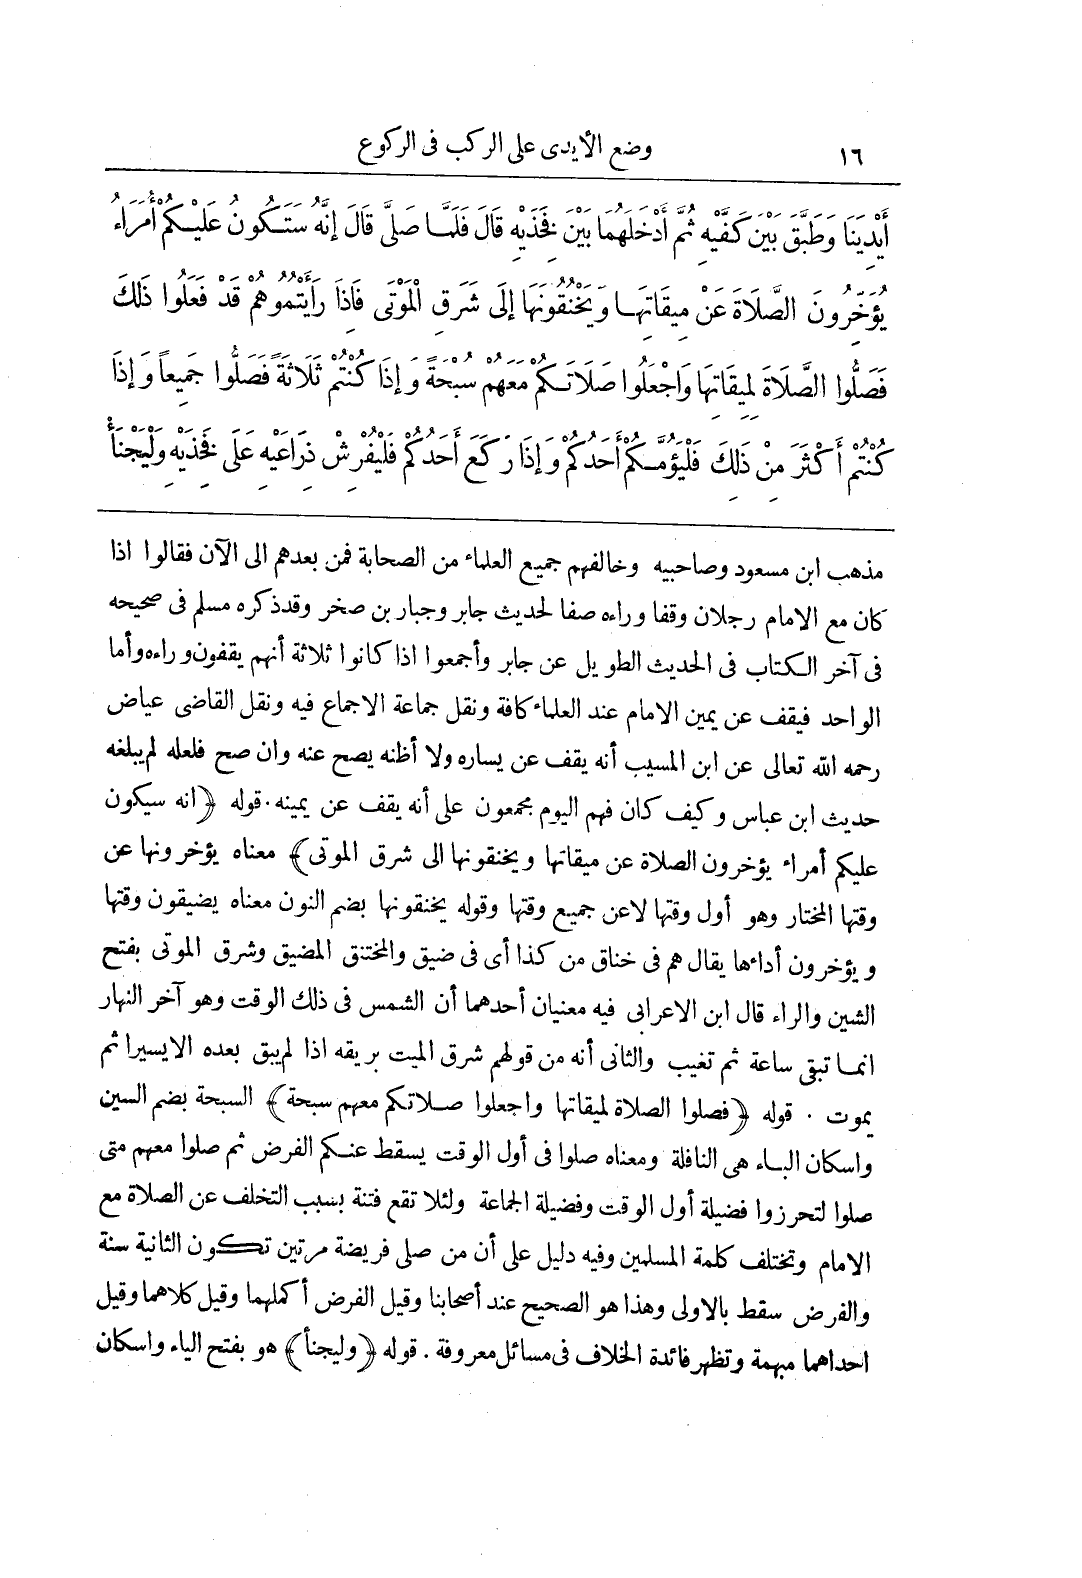 ١٦ وضع الأيدى على الركب فى الركوع
أَيْدِيَنَا وَطَبَّقَ بَيْنَ كَفَّيْهِ ثُمَّ أَدْخَلَهُمَا بَيْنَ فَخِذَيْهِ قَالَ فَلَمَّا صَلَّى قَالَ إِنَّهُ سَتَكُونُ عَلَيْكُمْ أُمَرَاءُ
يُؤَخِّرُونَ الصَّلَاةَ عَنْ مِيقَاتِهَا وَيَخْنُقُونَهَا إِلَى شَرَقِ الْمَوْتَى فَاذَا رَأَيْتُمُوهُمْ قَدْ فَعَلُوا ذَلِكَ
فَصَلُّوا الصَّلَاةَ لِمِيقَاتِهَا وَاجْعَلُوا صَلَاتَكُمْ مَعَهُمْ سُبْحَةً وَإِذَا كُنْتُمْ ثَلَاثَةً فَصَلُّوا جَمِيعاً وَإِذَا
كُنْتُمْ أَكْثَرَ مِنْ ذَلِكَ فَلْيَؤُمَّكُمْ أَحَدُكُمْ وَإِذَا رَكَعَ أَحَدُكُمْ فَلْيُفْرِشْ ذِرَاعَيْهِ عَلَى فَخِذَيْهِ وَلْيَجْنَأْ
مذهب ابن مسعود وصاحبيه وخالفهم جميع العلماء من الصحابة فمن بعدهم الى الآن فقالوا اذا
كان مع الامام رجلان وقفا وراءه صفا لحديث جابر وجبار بن صخر وقد ذكره مسلم فى صحيحه
فى آخر الكتاب فى الحديث الطويل عن جابر وأجمعوا اذا كانوا ثلاثة أنهم يقفون وراءه وأما
الواحد فيقف عن يمين الامام عند العلماء كافة ونقل جماعة الاجماع فيه ونقل القاضى عياض
رحمه الله تعالى عن ابن المسيب أنه يقف عن يساره ولا أظنه يصح عنه وان صح فلعله لم يبلغه
حديث ابن عباس وكيف كان فهم اليوم مجمعون على أنه يقف عن يمينه. قوله ﴿انه سيكون
عليكم أمراء يؤخرون الصلاة عن ميقاتها ويخنقونها الى شرق الموتى﴾ معناه يؤخرونها عن
وقتها المختار وهو أول وقتها لاعن جميع وقتها وقوله يخنقونها بضم النون معناه يضيقون وقتها
ويؤخرون أداءها يقال هم فى خناق من كذا أى فى ضيق والمختنق المضيق وشرق الموتى بفتح
الشين والراء قال ابن الاعرابى فيه معنيان أحدهما أن الشمس فى ذلك الوقت وهو آخر النهار
انما تبقى ساعة ثم تغيب والثانى أنه من قولهم شرق الميت بريقه اذا لم يبق بعده الايسيرا ثم
يموت . قوله ﴿فصلوا الصلاة لميقاتها واجعلوا صلاتكم معهم سبحة﴾ السبحة بضم السين
واسكان الباء هى النافلة ومعناه صلوا فى أول الوقت يسقط عنكم الفرض ثم صلوا معهم متى
صلوا لتحرزوا فضيلة أول الوقت وفضيلة الجماعة ولئلا تقع فتنة بسبب التخلف عن الصلاة مع
الامام وتختلف كلمة المسلمين وفيه دليل على أن من صلى فريضة مرتين تكون الثانية سنة
والفرض سقط بالاولى وهذا هو الصحيح عند أصحابنا وقيل الفرض أكملهما وقيل كلاهما وقيل
احداهما مبهمة وتظهر فائدة الخلاف فى مسائل معروفة . قوله ﴿وليجنأ﴾ هو بفتح الياء واسكان